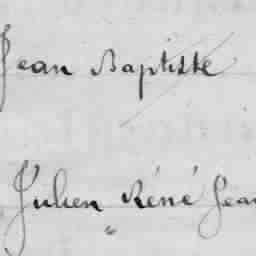 Jean Baptiste
Julien Réné Jean